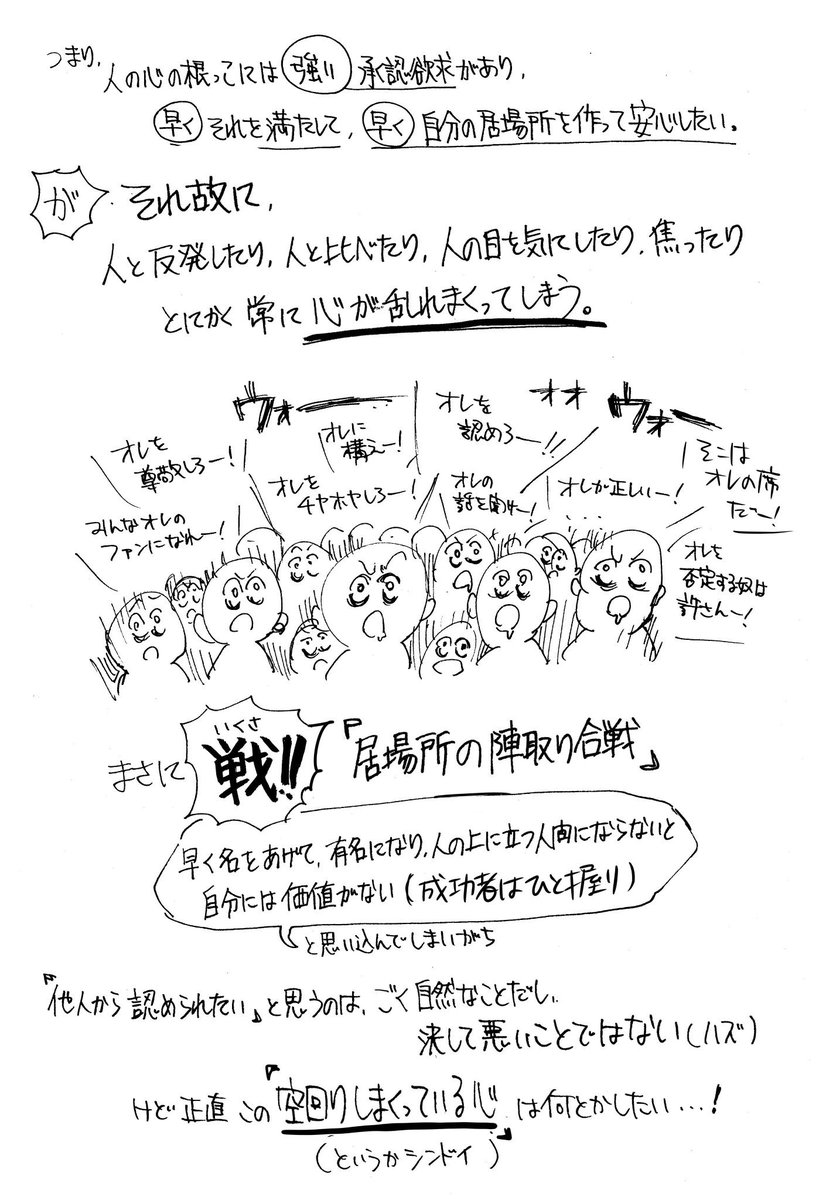 つまり、
人の心の根っこには強い承認欲求があり、
早くそれを満たして、早く自分の居場所を作って安心したい。
が それ故に、
人と反発したり、人と比べたり、人の目を気にしたり、焦ったり
とにかく常に心が乱れまくってしまう。
ウォーー
オオ
ウォー
オレを
尊敬しろー!
オレに
構えー!
オレを
認めろー!!
そこは
オレの席
だー!
みんなオレの
ファンになれー!
オレを
チヤホヤしろー!
オレの
話を聞けー!
オレが正しいー!
オレを
否定する奴は
許さんー!
いくさ
まさに 戦!! 『居場所の陣取り合戦』
早く名をあげて、有名になり、人の上に立つ人間にならないと
自分には価値がない(成功者はひと握り)
と思い込んでしまいがち
『他人から認められたい』と思うのは、ごく自然なことだし、
決して悪いことではない(ハズ)
けど正直この『空回りしまくっている心』は何とかしたい…!
(というかシンドイ)